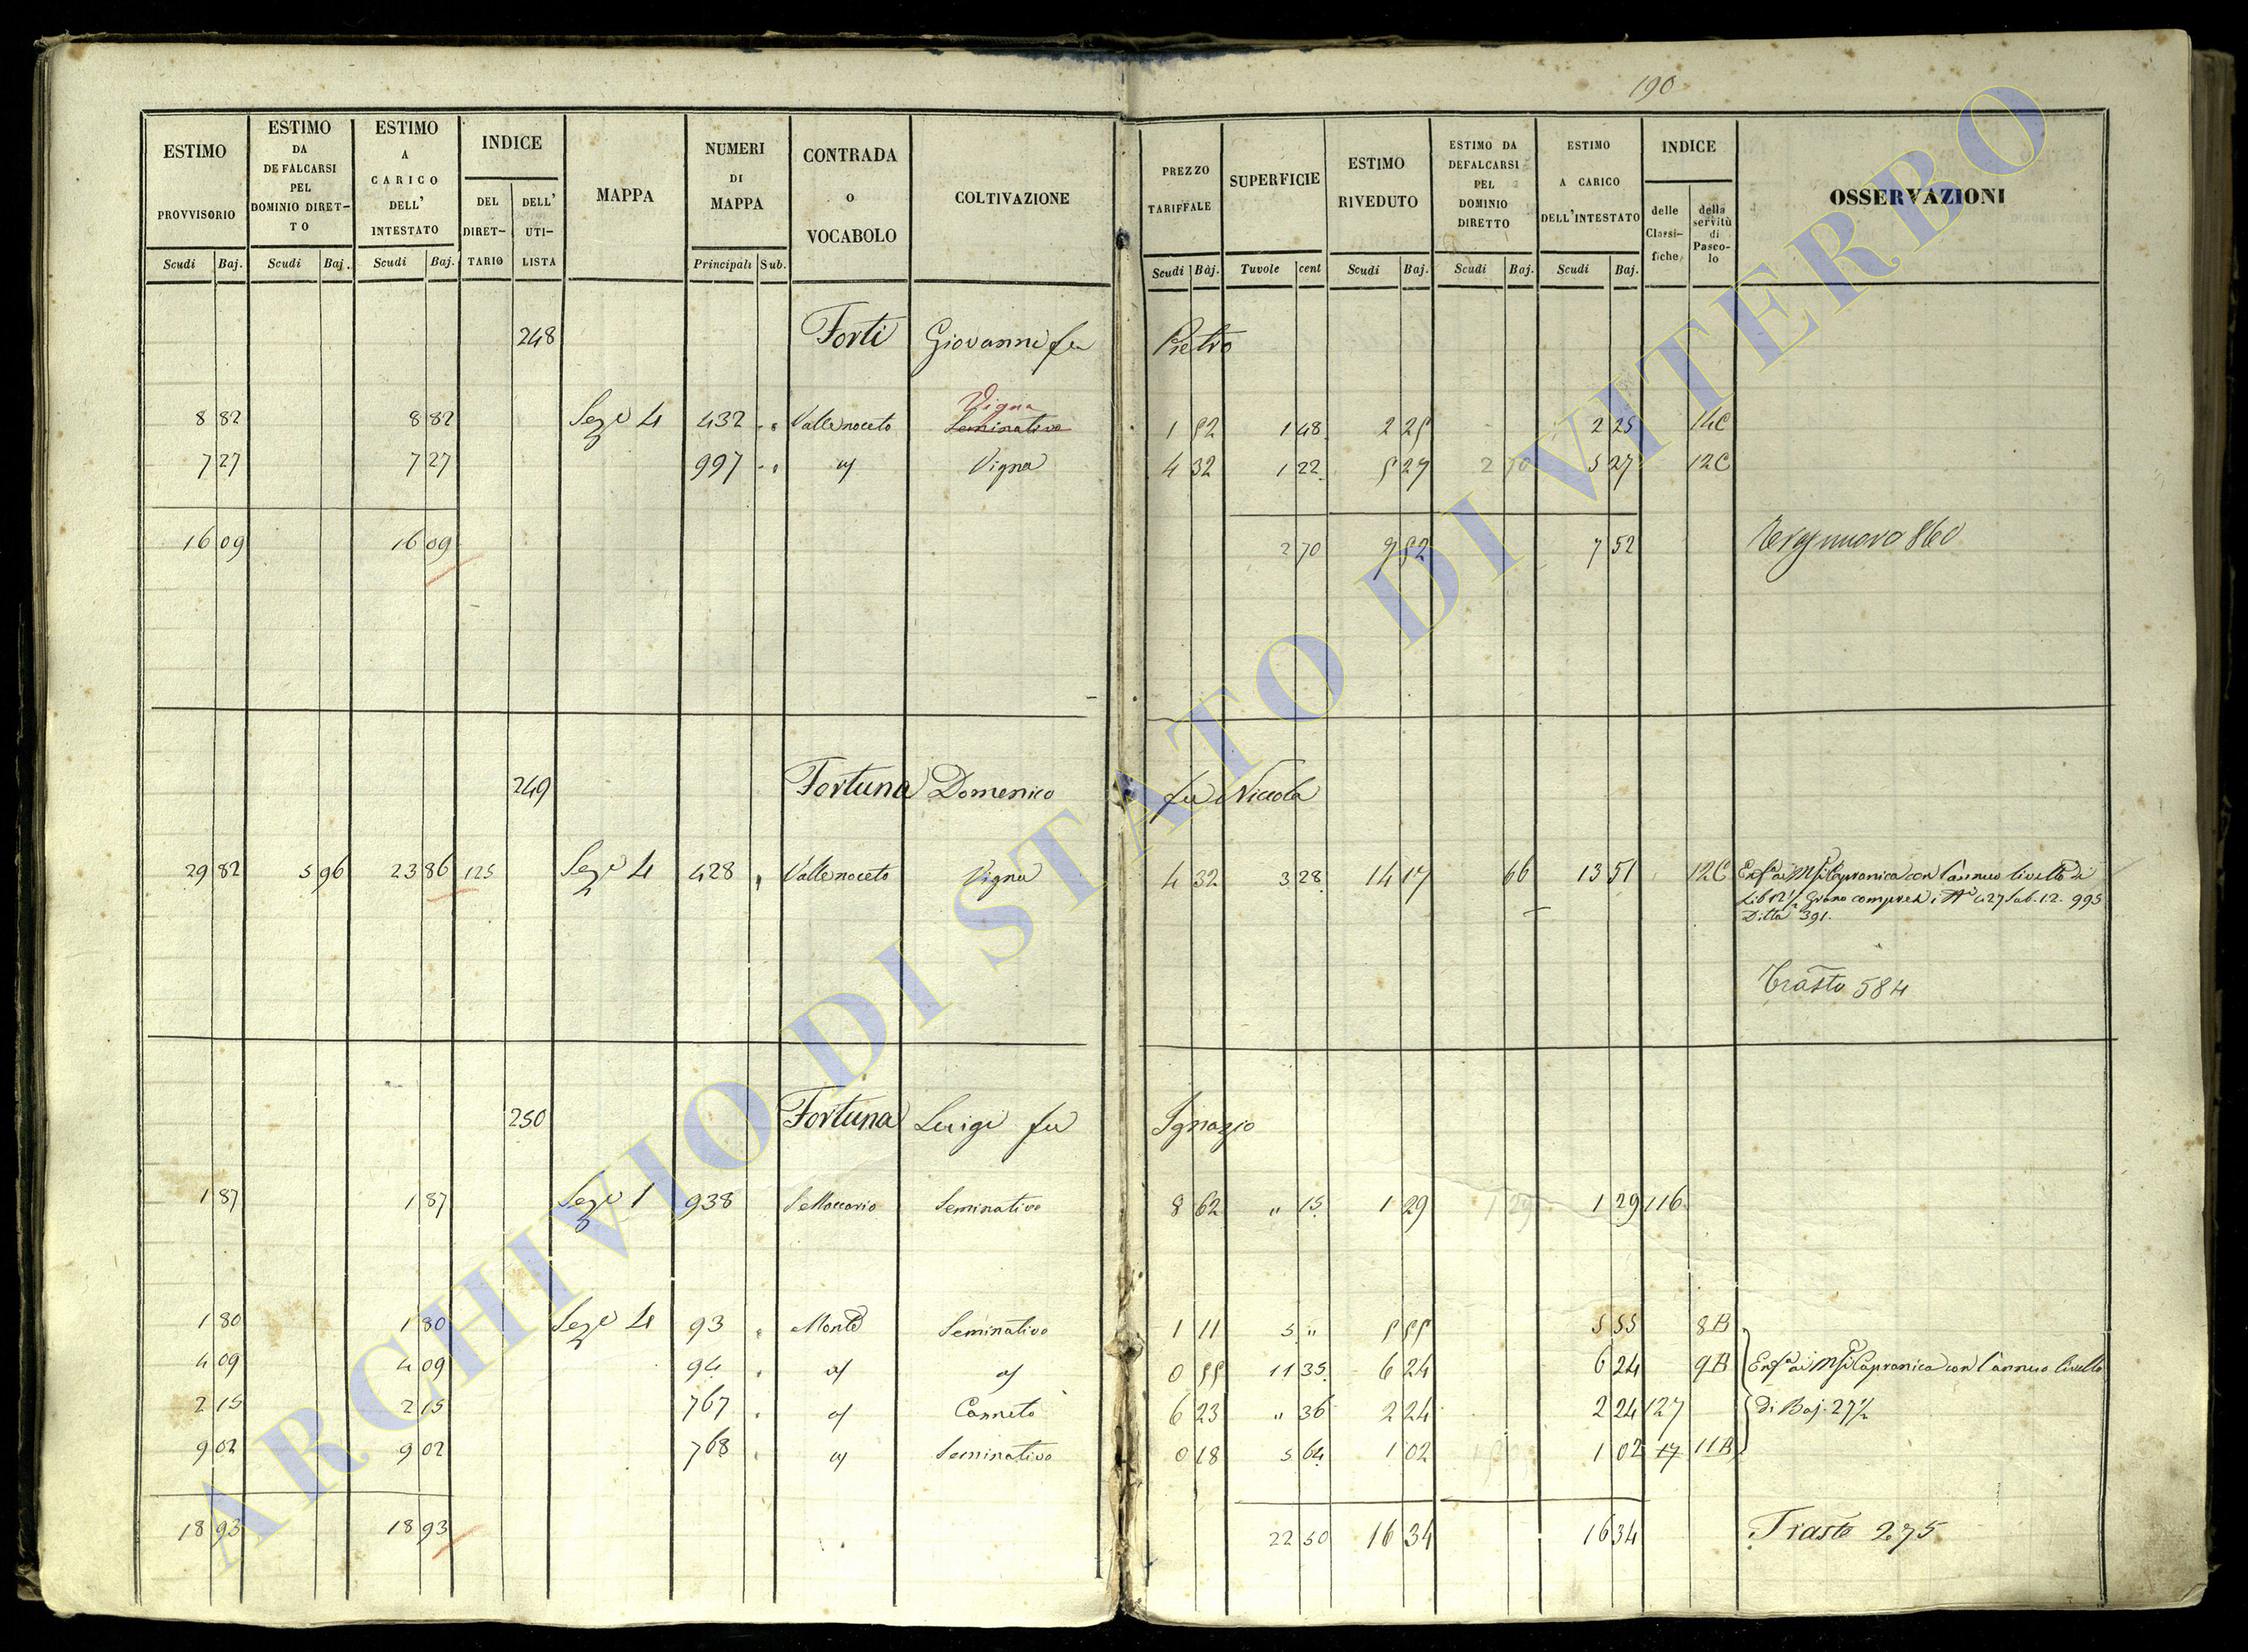 190
ESTIMO PROVVISORIO Scudi Baj.
ESTIMO DA DEFALCARSI PEL DOMINIO DIRET-TO Scudi Baj.
ESTIMO A CARICO DELL' INTESTATO Scudi Baj.
INDICE DEL DIRET-TARIO DELL' UTI-LISTA
MAPPA
NUMERI DI MAPPA Principali Sub.
CONTRADA o VOCABOLO
COLTIVAZIONE
PREZZO TARIFFALE Scudi Baj.
SUPERFICIE Tavole cent
ESTIMO RIVEDUTO Scudi Baj.
ESTIMO DA DEFALCARSI PEL DOMINIO DIRETTO Scudi Baj.
ESTIMO A CARICO DELL'INTESTATO Scudi Baj.
INDICE delle Classi-fiche della servitù di Pasco-lo
OSSERVAZIONI
248 Forti Giovanni fu Pietro
Vigna
8 82 8 82 Seze 4 432 Vallenoceto Seminativo 1 52 1 48 2 25 2 25 14C
7 27 7 27 997 Vigna 4 32 1 22 5 27 2 70 5 27 12C
16 09 16 09 2 70 7 52 7 52 860
249 Fortuna Domenico fu Niccola
29 82 5 96 23 86 125 Seze 4 428 Vallenoceto Vigna 4 32 3 28 14 17 66 13 51 12C Capranica con l'annuo livello di
Grano 427 Sub. 1.2. 995
Ditta 391.
Trasto 584
250 Fortuna Luigi fu Ignazio
1 87 1 87 Seze 1 938 Seminativo 8 62 " 15 1 29 1 29 1 29 116
1 80 1 80 Seze 4 93 Monte Seminativo 1 11 5 " 5 55 5 55 8B
4 09 4 09 94 0 55 11 35 6 24 6 24 9B Capranica con l'annuo livello
2 15 2 15 767 Canneto 6 23 " 36 2 24 2 24 127 di Baj. 27½
9 02 9 02 768 Seminativo 0 18 5 64 1 02 1 02 17 11B
18 93 18 93 22 50 16 34 16 34 Trasto 275
ARCHIVIO DI STATO DI VITERBO